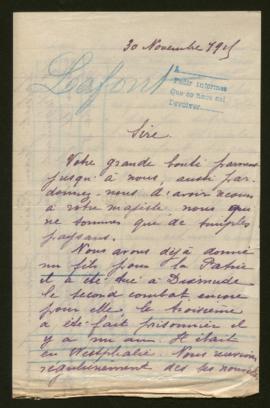 30 Novembre 1915
Lafont
A
Pedir informes
Que se nos
Devolver
Sire
Votre grande bonté parvenue
jusqu'à nous, aussi par-
donnez-nous d'avoir recours
à votre majesté nous qui
ne sommes que de simples
paysans.
Nous avons déjà donné
un fils pour la Patrie
il a été tué à Dixmude
le second combat encore
pour elle, le troisième
a été fait prisonnier il
y a un an. Il était
en Westphalie. Nous recevions
regulièrement des ses nouvelles